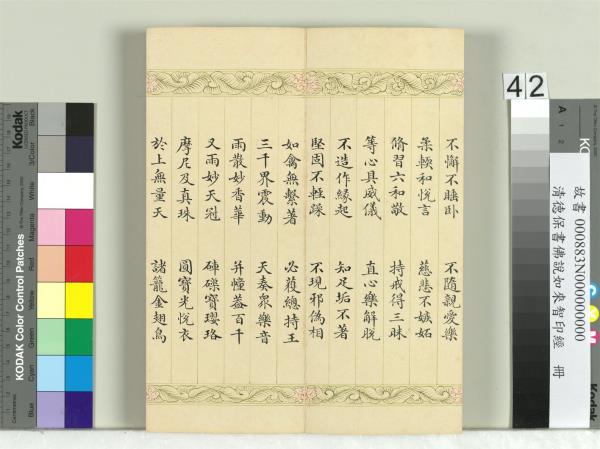 不懈不睡卧 不隨親愛樂
柔輭和悅言 慈悲不嫉妬
脩習六和敬 持戒得三昧
等心具威儀 直心樂解脫
不造作緣起 知足垢不著
堅固不輕躁 不現邪偽相
如禽無繫著 必獲總持王
三千界震動 天奏衆樂音
雨散妙香華 并幢蓋百千
又雨妙天冠 硨磲寶瓔珞
摩尼及真珠 圓寶光悅衣
於上無量天 諸龍金翅鳥
42
故書 000883N000000000
清德保書佛說如來智印經 冊
Kodak
KODAK Color Control Patches
Blue
Cyan
Green
Yellow
Red
Magenta
White
3/Color
Black
A
1
2